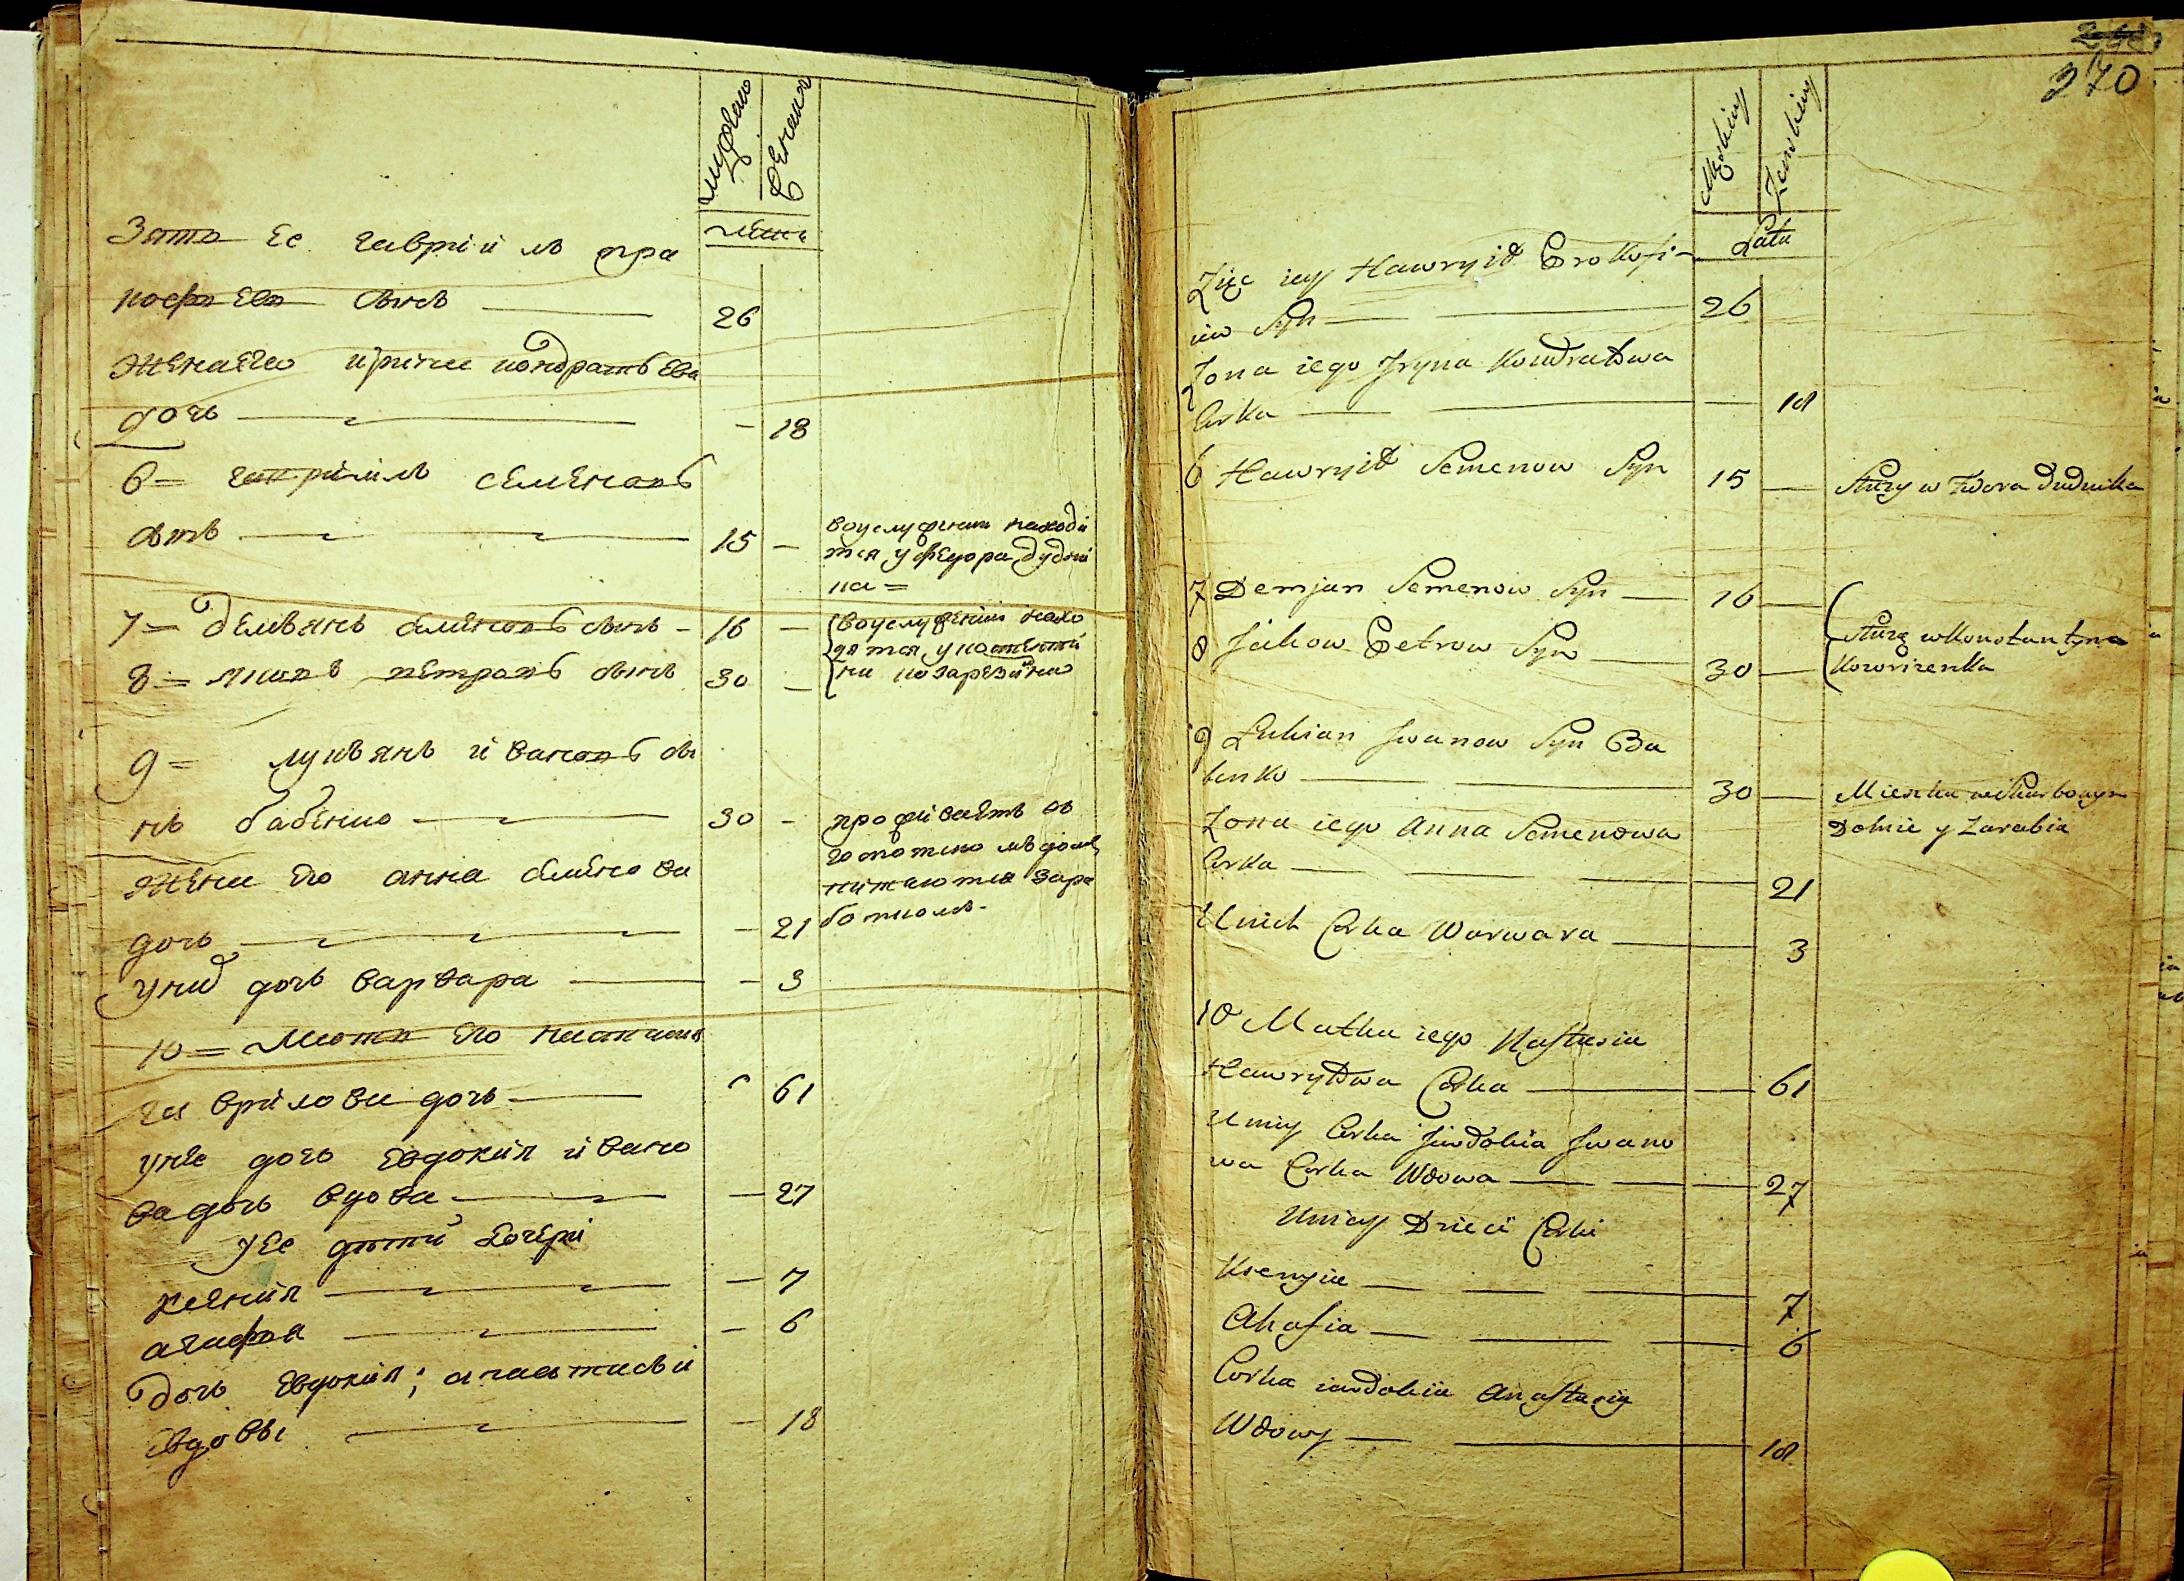 мужеска
женска
лета
Зять Ее гавріиль про
кофьевъ сынъ 26
жена Его ирина кондратьева
дочь 18
6 = гавріилъ семеновъ
сынъ 15
воуслуженіи находи
тся у федора дудни
ка =
7 = демьянъ семеновъ сынъ 16
воуслуженіи нахо
дятся у костенти
на
8 = яковъ петровъ сынъ 30
9 = лукьянъ ивановъ сы
нъ бабенко 30
проживаетъ въ
домѣ
питаются зара
боткомъ
жена Его анна семенова
дочь 21
у них дочь варвара 3
10 = Мать Его настасия
гаврилова дочь 61
унее дочь Евдокия ивано
ва дочь вдова 27
у Ее дети дочери
ксения 7
агафья 6
дочь Евдокии; анастасьи
вдовы 18
270
Męskiey
Żenskiey
Lata
Zięc iey Hawryił Prokofi-
iw Syn 26
Żona iego Jryna Kondratowa
Corka 18
6 Hawryił Semenow Syn 15 Służy w Fedora Dudnika
7 Demjan Semenow Syn 16
8 Jakow Petrow Syn 30
Służą w Konstantyna
Kowrizenka
9 Lukian Jwanow Syn Ba
benko 30
Mieszka w Skarbowym
Domie y Zarabia
Żona iego Anna Semenowa
Corka 21
U nich Corka Warwara 3
10 Matka iego Nastasia
Hawryłowa Corka 61
U niey Corka Jewdokia Jwano
wa Corka Wdowa 27
U niey Dzieci Corki
Ksenyia 7
Ahafia 6
Corka iewdokii Anastasiy
Wdowy 18